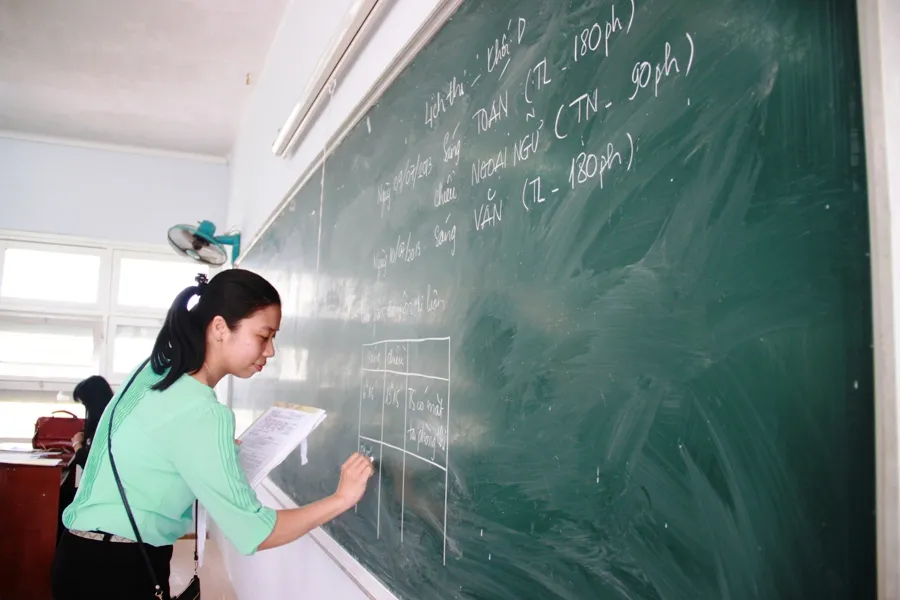 Lịch thi - Khối D
Ngày 09/07/2013 Sáng TOÁN (TL - 180ph)
chiều NGOẠI NGỮ (TN - 90ph)
Ngày 10/07/2013 - Sáng VĂN (TL - 180ph)
Sáng chiều
TS có mặt
tại phòng thi